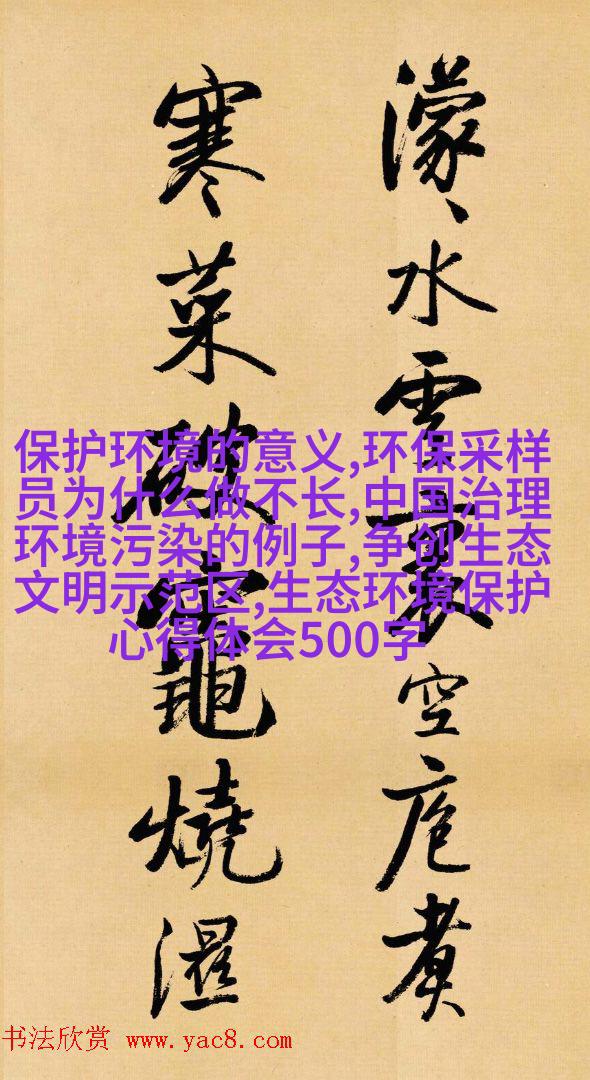 濛、水雲裏空庖煮
寒菜破竈燒濕
保护环境的意义,环保采样
员为什么做不长,中国治理
环境污染的例子,争创生态
文明示范区,生态环境保护
心得体会500字
书法欣赏 www.yac8.com